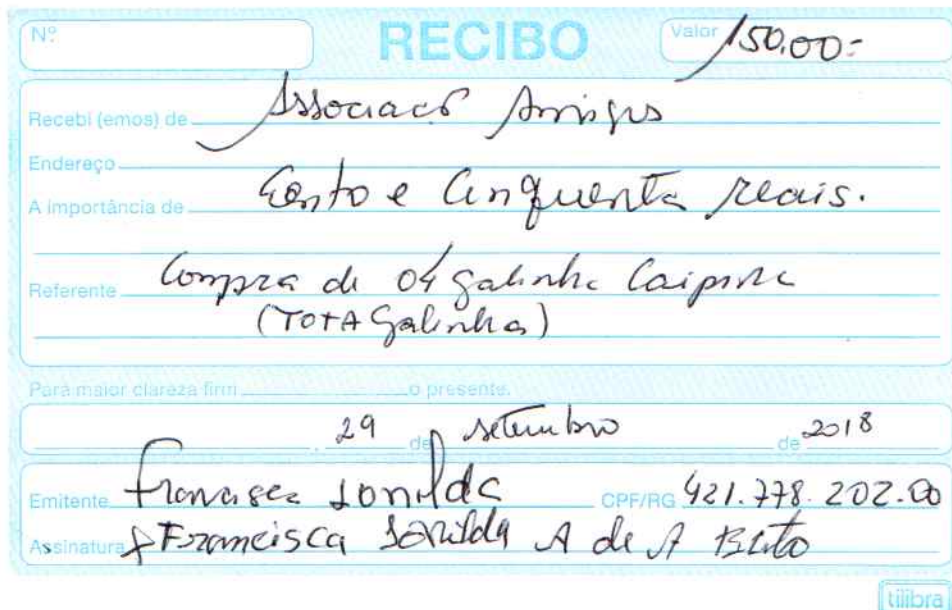 Nº RECIBO Valor 150,00=
Recebi (emos) de Associacó Amigos
Endereço
A importância de Cento e Cinquenta reais.
Referente Compra de 04 galinha Caipira
(TOTA Galinha)
Para maior clareza firm o presente.
, 29 de setembro de 2018
Emitente Francisca Ionilda CPF/RG 421.778.202.00
Assinatura Francisca Ionilda A de A Brito
tilibra